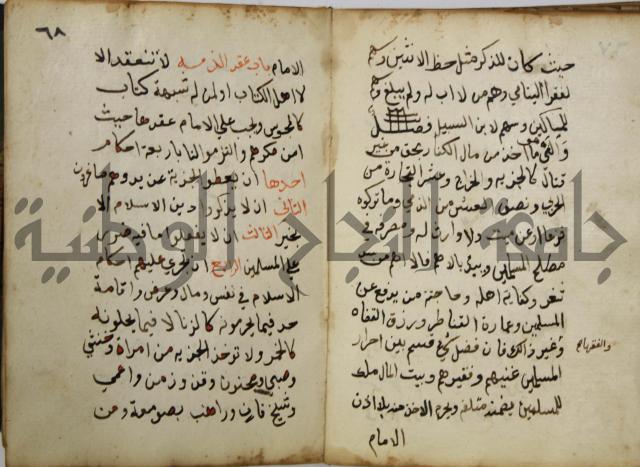 حيث كان للذكر مثل حظ الانثيين وسهم
لفقرا اليتامي وهم من لا اب له ولم يبلغ وسهم
للمساكين وسهم لابن السبيل فصل
والفي ما اخذ من مال الكفار بحق من غير
قتال كالجزيه والخراج وعشر التجارة من
الحربي ونصف العشر من الذمي وما تركوه
فزعا او عن ميت ولا وارث له ومصرفه في
مصالح المسلمين ويبدى بالاهم فالاهم من سد
ثغر وكفاية اهله وحاجة من يدفع عن
المسلمين وعمارة القناطر ورزق القضاة
والفقهاء
وغير ذلك فان فضل شي قسم بين احرار
المسلمين غنيهم وفقيرهم وبيت المال ملك
للمسلمين يضمنه متلفه ويحرم الاخذ منه بلا اذن
الامام
٦٨
الامام باب عقد الذمه لا تنعقد الا
لاهل الكتاب او لمن له شبهة كتاب
كالمجوس ويجب علي الامام عقدها حيث
امن مكرهم والتزموا لنا باربعة احكام
احدها ان يعطوا الجزية عن يد وهم صاغرون
الثاني ان لا يذكروا دين الاسلام الا
بخير الثالث ان لا يفعلوا ما فيه ضرر
علي المسلمين الرابع ان تجري عليهم احكام
الاسلام في نفس ومال وعرض واقامة
حد فيما يحرمونه كالزنا لا فيما يحلونه
كالخمر ولا توخذ الجزيه من امراة وخنثي
وصبي ومجنون وقن وزمن واعمي
وشيخ فان وراهب بصومعة ومن
جامعة النجاح الوطنية